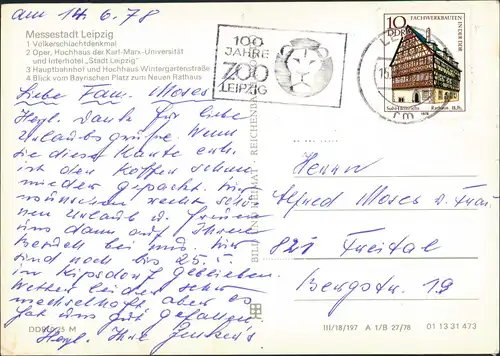 am 14.6.78
Messestadt Leipzig
1 Völkerschlachtdenkmal
2 Oper, Hochhaus der Karl-Marx-Universität
und Interhotel „Stadt Leipzig"
3 Hauptbahnhof und Hochhaus Wintergartenstraße
4 Blick vom Bayrischen Platz zum Neuen Rathaus
100
JAHRE
ZOO
LEIPZIG
10
FACHWERKBAUTEN
IN DER DDR
DDR
Suhl-Heinrichs
Rathaus, 16. Jh.
1978
Liebe Fam. Moses
Hrzl. Dank für liebe
Urlaubsgrüße. Wenn
Sie diese Karte erh.
ist der Koffer schon
wieder gepackt. Wir
wünschen recht schö-
nen Urlaub u. freuen
uns dann auf Ihren
Besuch bei uns. Wir
sind noch bis 25.
in Kipsdorf geblieben.
Wetter leider sehr
wechselhaft, aber es
hat uns gut gefallen.
Herzl. Ihre
BILD UND HEIMAT · REICHENBACH
Herrn
Alfred Moses u. Frau
821 Freital
Bergstr. 19
M
III/18/197 A 1/B 27/78 01 13 31 473